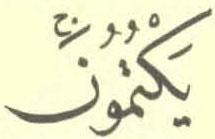 يَكْتُمُونَ ۚ